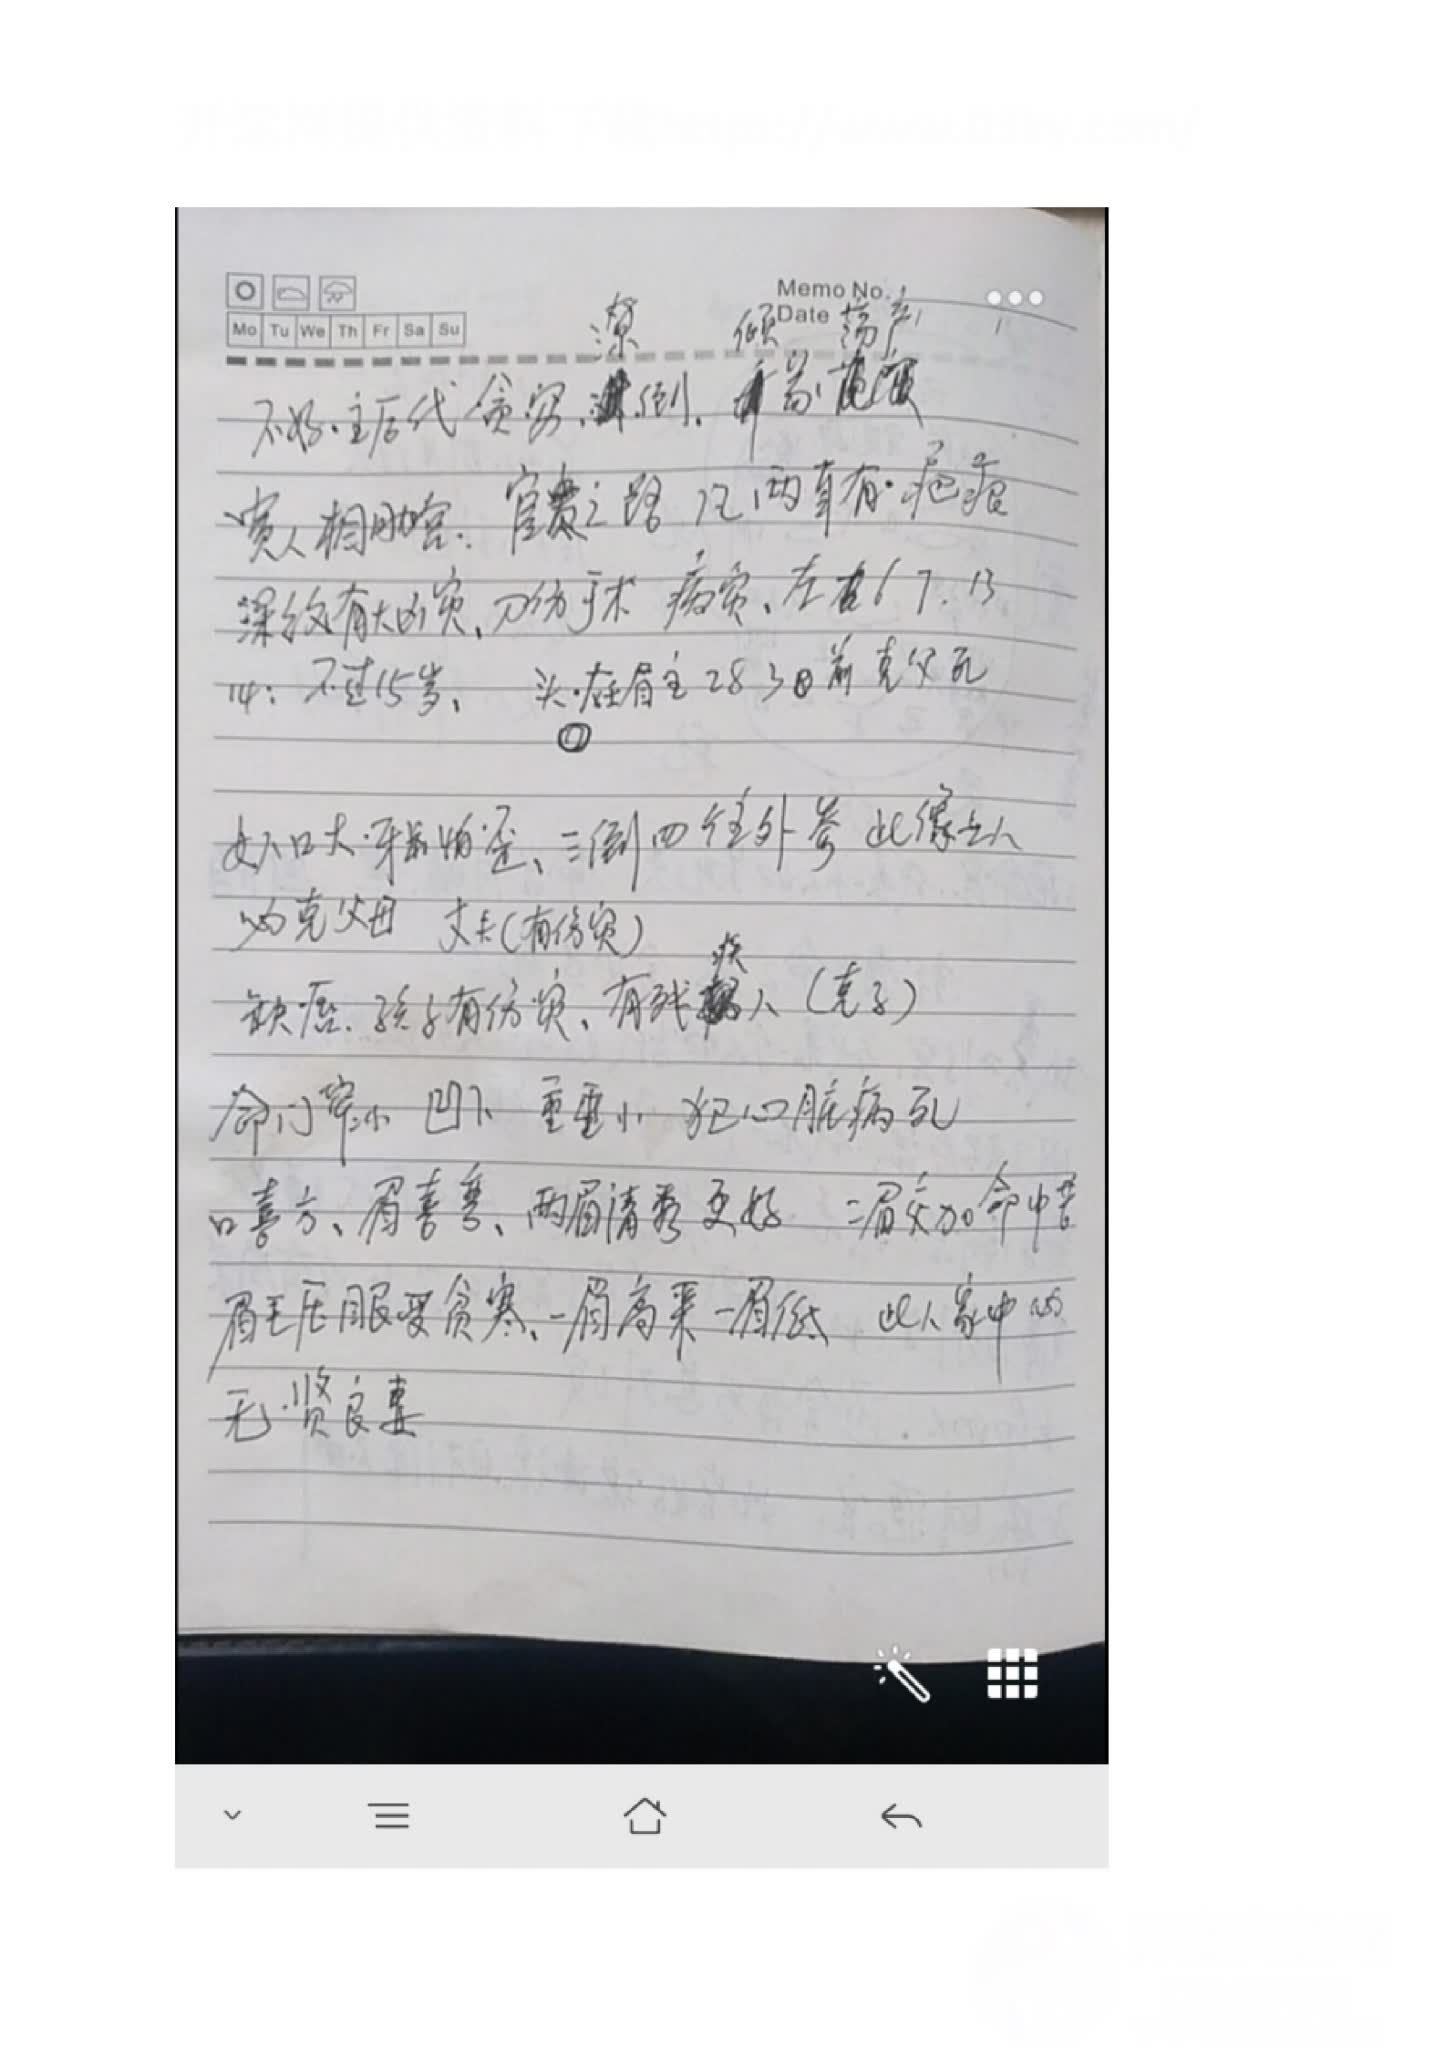 Memo No.
Date
Mo Tu We Th Fr Sa Su
潦 倾 荡产
不好.主后代贪穷、倒.家
贵人相助宫:官贵之路 况两耳有.疤痕
深纹有大凶灾、刀伤手术 病灾、左右6 7.13
14:不过15岁、 头.在眉主28 30前克父死
女人口大.牙最怕.歪、三倒四往外参 此像之人
必克父母 丈夫(有伤灾)
疾
缺.痣.孩子有伤灾、有残人(克子)
命门窄小 凹下 重重小 犯心脏病死
口喜方、眉喜弯、两眉清秀更好 二眉交加命中苦
眉毛压眼受贫寒、一眉高来一眉低 此人家中必
无.贤良妻